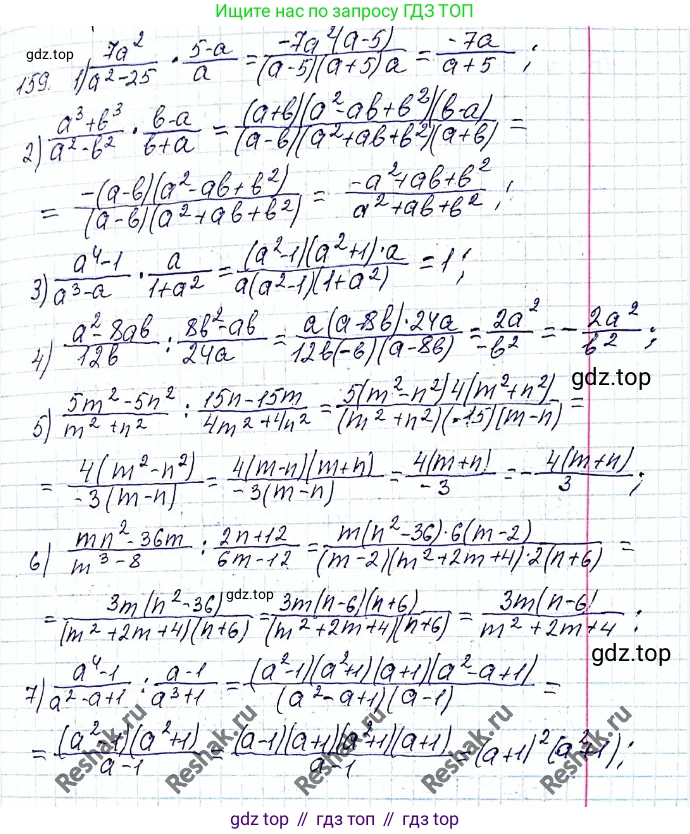 Ищите нас по запросу ГДЗ ТОП
gdz.top
159. 1) 7a²/(a²-25) · (5-a)/a = -7a²(a-5)/((a-5)(a+5)a) = -7a/(a+5);
2) (a³+b³)/(a²-b²) · (b-a)/(b+a) = (a+b)(a²-ab+b²)(b-a)/((a-b)(a²+ab+b²)(a+b)) =
= -(a-b)(a²-ab+b²)/((a-b)(a²+ab+b²)) = (-a²+ab+b²)/(a²+ab+b²);
3) (a⁴-1)/(a³-a) · a/(1+a²) = (a²-1)(a²+1)·a/(a(a²-1)(1+a²)) = 1;
4) (a²-8ab)/12b : (8b²-ab)/24a = a(a-8b)·24a/(12b(-b)(a-8b)) = 2a²/-b² = -2a²/b²;
gdz.top
5) (5m²-5n²)/(m²+n²) : (15n-15m)/(4m²+4n²) = 5(m²-n²)4(m²+n²)/((m²+n²)(-15)(m-n)) =
= 4(m²-n²)/(-3(m-n)) = 4(m-n)(m+n)/(-3(m-n)) = 4(m+n)/-3 = -4(m+n)/3;
6) (mn²-36m)/(m³-8) : (2n+12)/(6m-12) = m(n²-36)·6(m-2)/((m-2)(m²+2m+4)·2(n+6)) =
gdz.top
= 3m(n²-36)/((m²+2m+4)(n+6)) = 3m(n-6)(n+6)/((m²+2m+4)(n+6)) = 3m(n-6)/(m²+2m+4);
gdz.top
7) (a⁴-1)/(a²-a+1) : (a-1)/(a³+1) = (a²-1)(a²+1)(a+1)(a²-a+1)/((a²-a+1)(a-1)) =
= (a²-1)(a²+1)/(a-1) = (a-1)(a+1)(a²+1)(a+1)/(a-1) = (a+1)²(a²+1);
Reshak.ru
Reshak.ru
Reshak.ru
Reshak.ru
gdz.top // гдз.топ // gdz.top